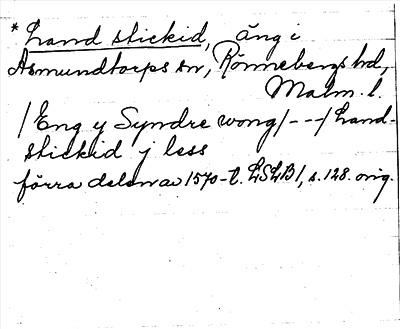 *Land stickid, äng i
Asmundtorps sn, Rönnebergs hd,
Malm. l.
/Eng y Syndre wong/---/Land-
stickid j less
förra delen av 1570-t. LSLB1, s. 128. orig.